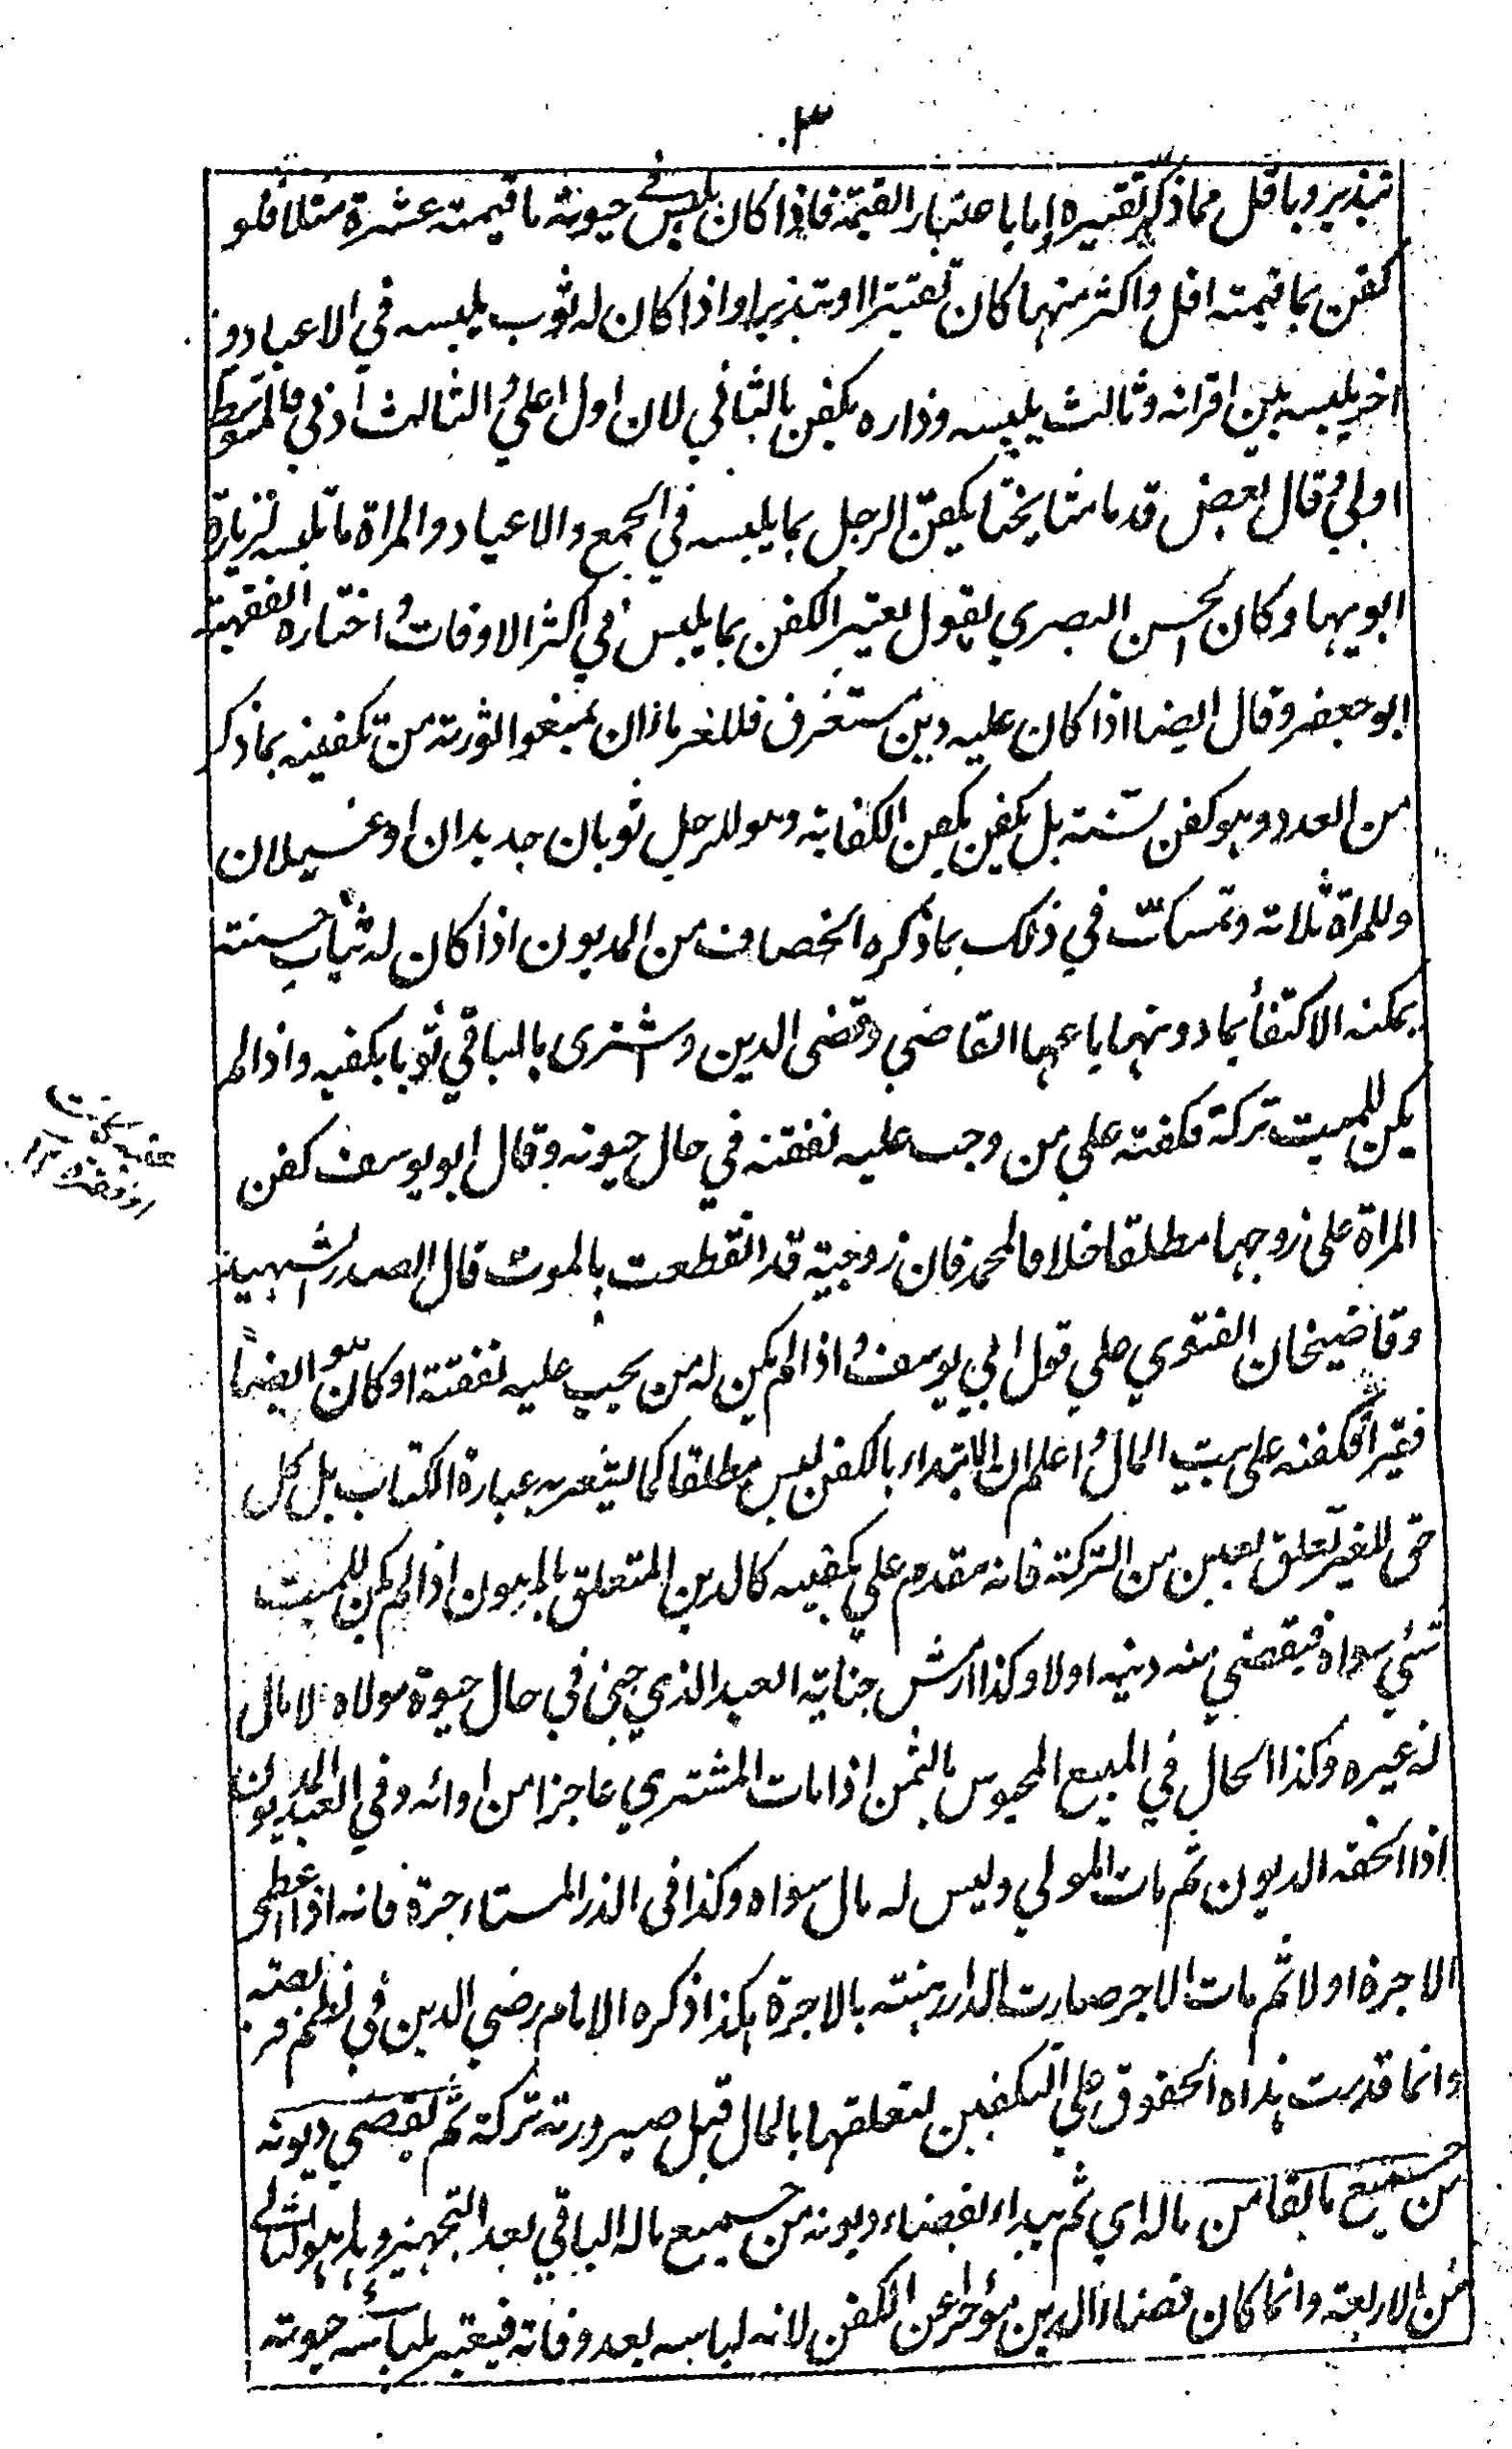 ٣
تبذير وباقل مما ذكر تقتيره اما باعتبار القيمة فاذا كان يلبس في حيوته ما قيمته عشرة مثلا فلو
كفن بما قيمته اقل واكثر منها كان تقتيرا او تبذيرا واذا كان له ثوب يلبسه في الاعياد و
اخر يلبسه بين اقرانه وثالث يلبسه في داره يكفن بالثاني لان اول اعلي والثالث ادني فالمتوسط
اولي وقال بعض قدماء مشايخنا يكفن الرجل بما يلبسه في الجمع والاعياد والمراة ما تلبسه لزيارة
ابويها وكان الحسن البصري يقول يعتبر الكفن بما يلبس في اكثر الاوقات واختاره الفقيه
ابو جعفر وقال ايضا اذا كان عليه دين مستغرق فللغرماء ان يمنعوا الورثة من تكفينه بما ذكر
من العدد وهو كفن سنة بل يكفن بكفن الكفاية وهو للرجل ثوبان جديدان او غسيلان
وللمراة ثلاثة وتمسك في ذلك بما ذكره الخصاف من المديون اذا كان له ثياب حسنة
يمكنه الاكتفاء بما دونها باعها القاضي وقضى الدين واشترى بالباقي ثوبا يكفيه واذا لم
يكن للميت تركة فكفنه علي من وجب عليه نفقته في حال حيوته وقال ابو يوسف كفن
المراة على زوجها مطلقا خلافا لمحمد فان زوجية قد انقطعت بالموت قال الصدر الشهيد
وقاضيخان الفتوي علي قول ابي يوسف واذا لم يكن له من يجب عليه نفقته او كان هو ايضا
فقيرا فكفنه على بيت المال واعلم ان الابتداء بالكفن ليس مطلقا كما يشعر به عبارة الكتاب بل كل
حق للغير تعلق بعين من التركة فانه مقدم علي تكفينه كالدين المتعلق بالمرهون اذا لم يكن للميت
شئي سواه فيقضي منه دينه اولا وكذا ارش جناية العبد الذي جنى في حال حيوة مولاه لا مال
له غيره وكذا الحال في المبيع المحبوس بالثمن اذا مات المشتري عاجزا من ادائه وفي العبد المديون
اذا الحقه الديون ثم مات المولي وليس له مال سواه وكذا فى الدار المستاجرة فانه اذا اعطى
الاجرة اولا ثم مات الاجر صارت الدار رهينة بالاجرة هكذا ذكره الامام رضي الدين في نظم فرائضه
وانما قدمت هذه الحقوق علي التكفين لتعلقها بالمال قبل صيرورته تركة ثم يقضي ديونه
من جميع ما بقا من ماله اي ثم يبداء بقضاء ديونه من جميع ماله الباقي بعد التجهيز وهذا هو الثاني
من الاربعة وانما كان قضاء الدين مؤخرا عن الكفن لانه لباسه بعد وفاته فيعتبر بلباسه حيوته